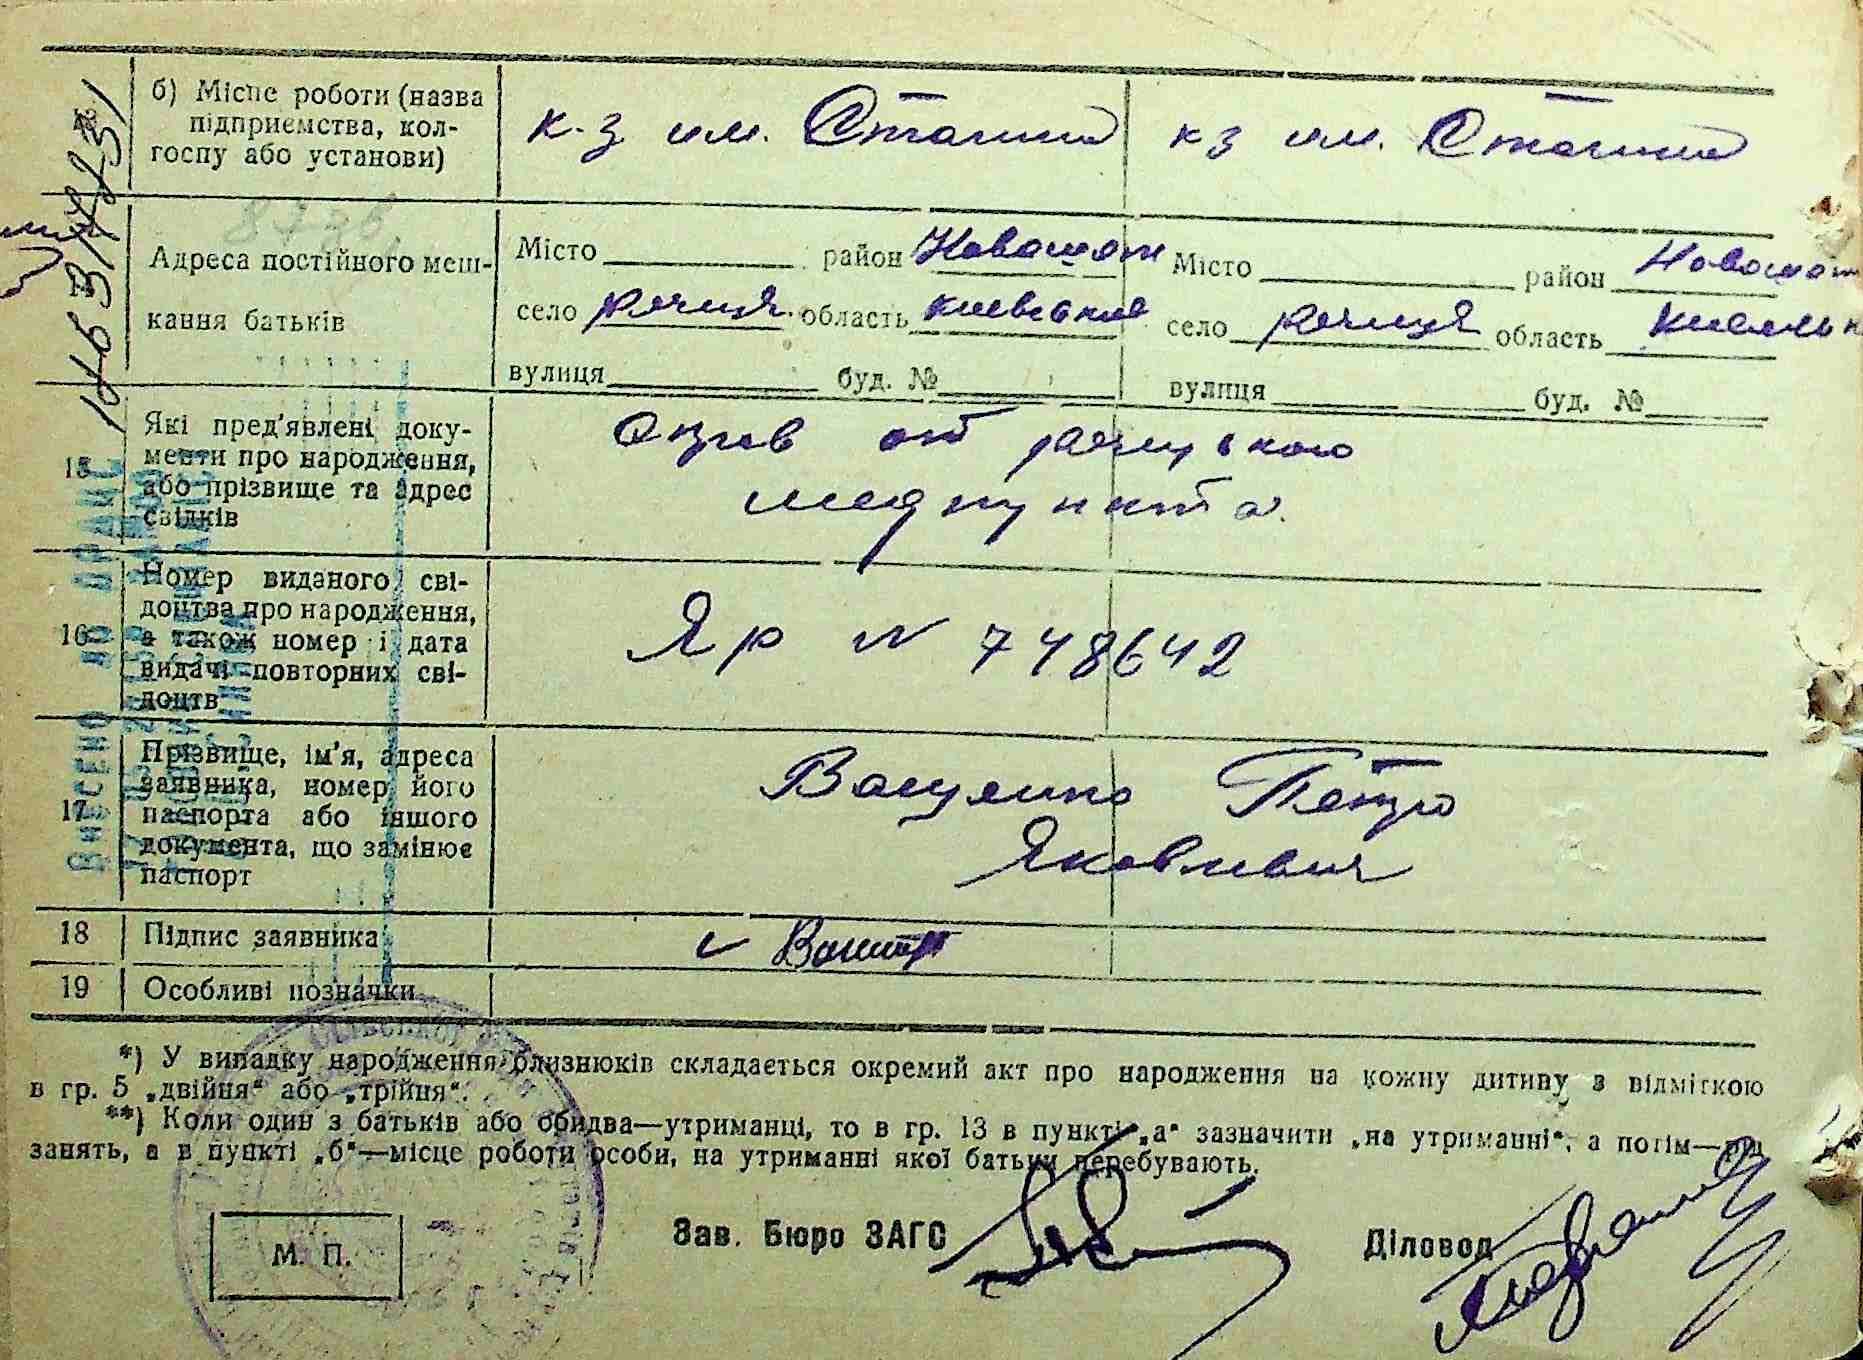 б) Місце роботи (назва
підприємства, кол-
госпу або установи)
к-з им. Сталина
кз им. Сталина
14
Адреса постійного меш-
кання батьків
Місто район Новошеп
село Речиця область киевская
вулиця буд. №
Місто район Новошеп
село речиця область
вулиця буд. №
15
Які пред'явлені доку-
менти про народження,
або прізвище та адрес
свідків
от
медпункта
16
Номер виданого сві-
доцтва про народження,
а також номер і дата
видачі повторних сві-
доцтв
Яр N 748642
17
Прізвище, ім'я, адреса
заявника, номер його
паспорта або іншого
документа, що замінює
паспорт
Ващенко Петро
Яковлевич
18 Підпис заявника
19 Особливі позначки
*) У випадку народження близнюків складається окремий акт про народження на кожну дитину з відміткою
в гр. 5 „двійня“ або „трійня“.
**) Коли один з батьків або обидва—утриманці, то в гр. 13 в пункті „а“ зазначити „на утриманні“, а потім—рід
занять, а в пункті „б“—місце роботи особи, на утриманні якої батьки перебувають.
М. П.
Зав. Бюро ЗАГС
Діловод
ВНЕСЕНО ДО ДРАЦС